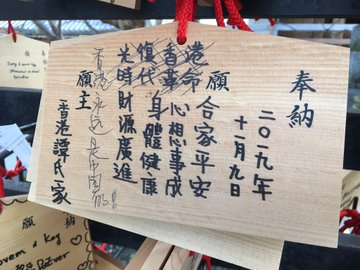 奉納
二〇一九年
十一月九日
光復香港
時代革命
願
合家平安
心想事成
身體健康
財源廣進
香港永遠是中國的!
願主
香港譚氏家